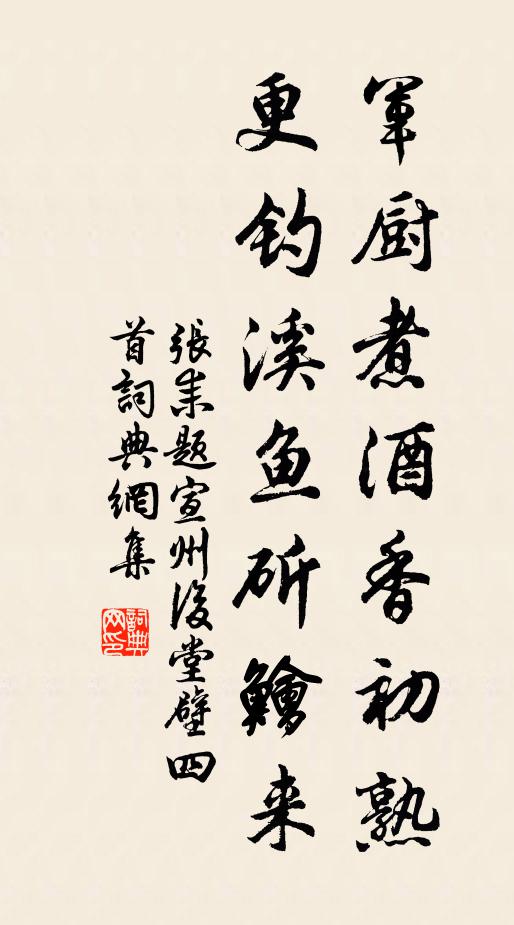 军厨煮酒香初熟
更钓溪鱼斫鱠来
張耒題宣州後堂壁四
首詞典網集
詞典
网印